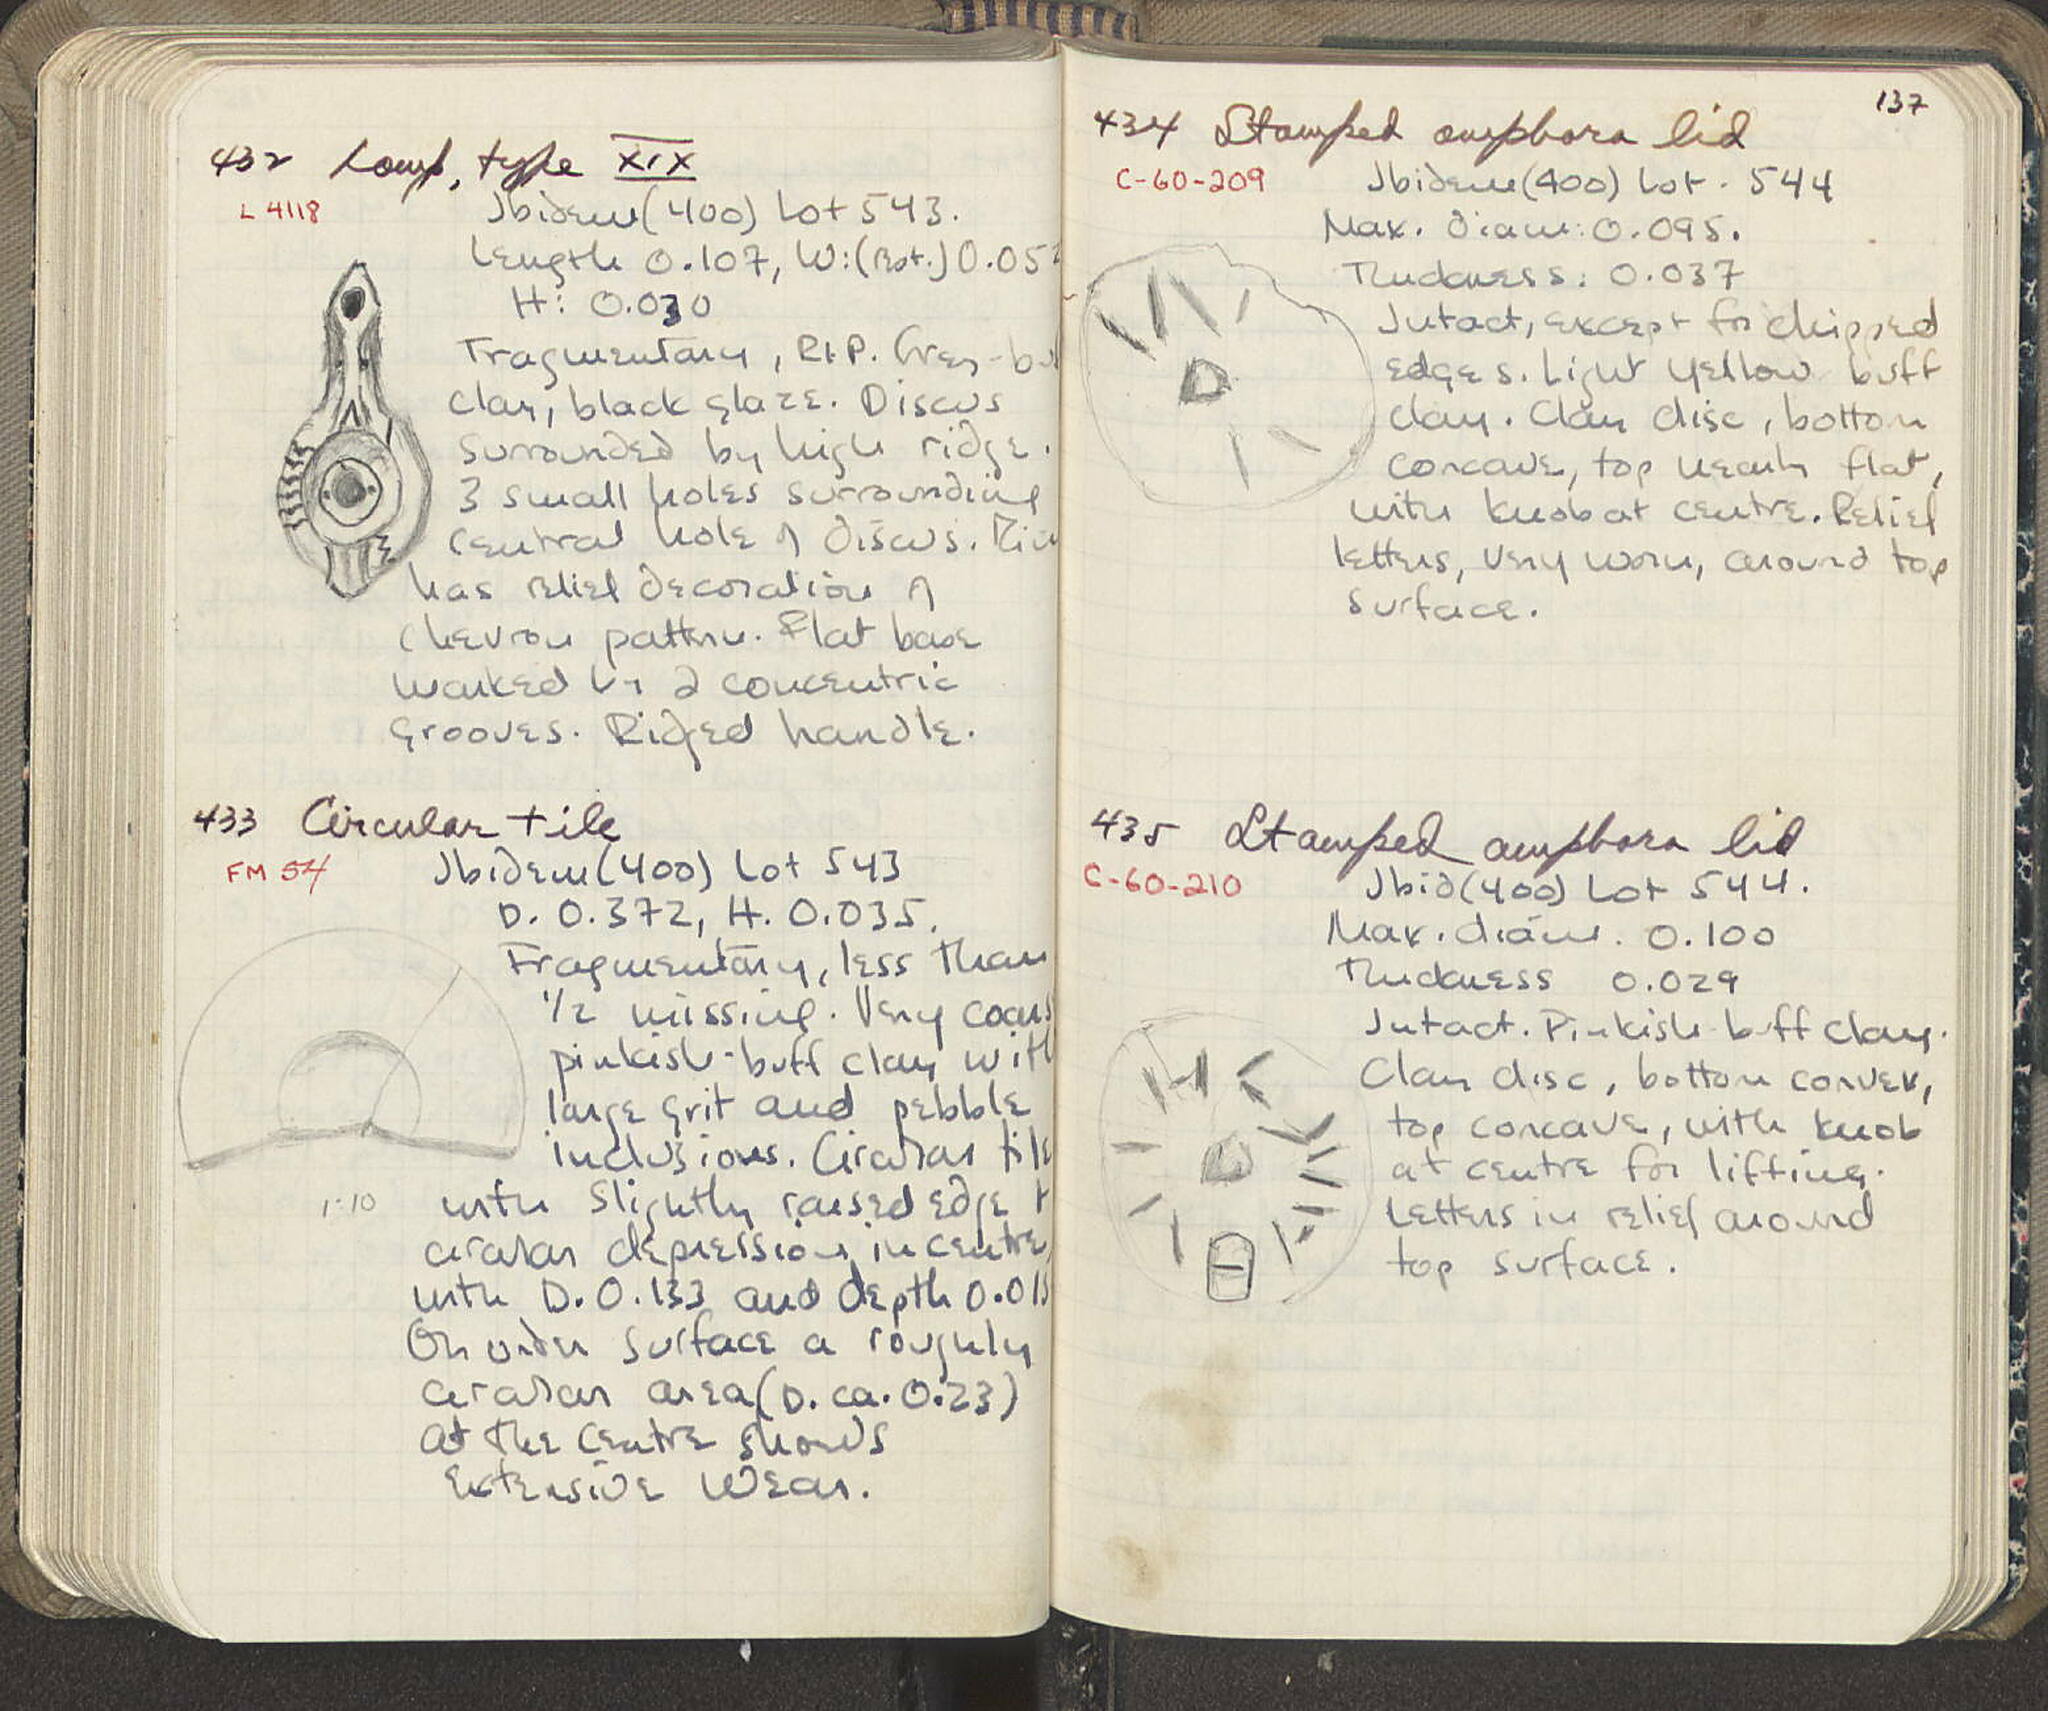 432 Lamp, type XIX
L 4118
Ibidem (400) Lot 543.
Length 0.107, W: (Rest.) 0.05
H: 0.030
Fragmentary, R+P. Grey-bu
clay, black glaze. Discus
surrounded by high ridge.
3 small holes surrounding
central hole of discus. Rim
has relief decoration of
chevron pattern. Flat base
marked by 2 concentric
grooves. Ridged handle.
433 Circular tile
FM 54
Ibidem (400) Lot 543
D. 0.372, H. 0.035.
Fragmentary, less than
1/2 missing. Very coars
pinkish-buff clay with
large grit and pebble
inclusions. Circular tile
1:10
with slightly raised edge +
circular depression in centre,
with D. 0.133 and depth 0.015
On under surface a roughly
circular area (D. ca. 0.23)
at the centre shows
extensive wear.
137
434 Stamped amphora lid
C-60-209
Ibidem (400) Lot. 544
Max. diam: 0.095.
Thickness: 0.037
Intact, except for chipped
edges. Light yellow buff
clay. Clay disc, bottom
concave, top nearly flat,
with knob at centre. Relief
letters, very worn, around top
surface.
435 Stamped amphora lid
C-60-210
Ibid (400) Lot 544.
Max. diam. 0.100
Thickness 0.029
Intact. Pinkish-buff clay.
Clay disc, bottom convex,
top concave, with knob
at centre for lifting.
Letters in relief around
top surface.